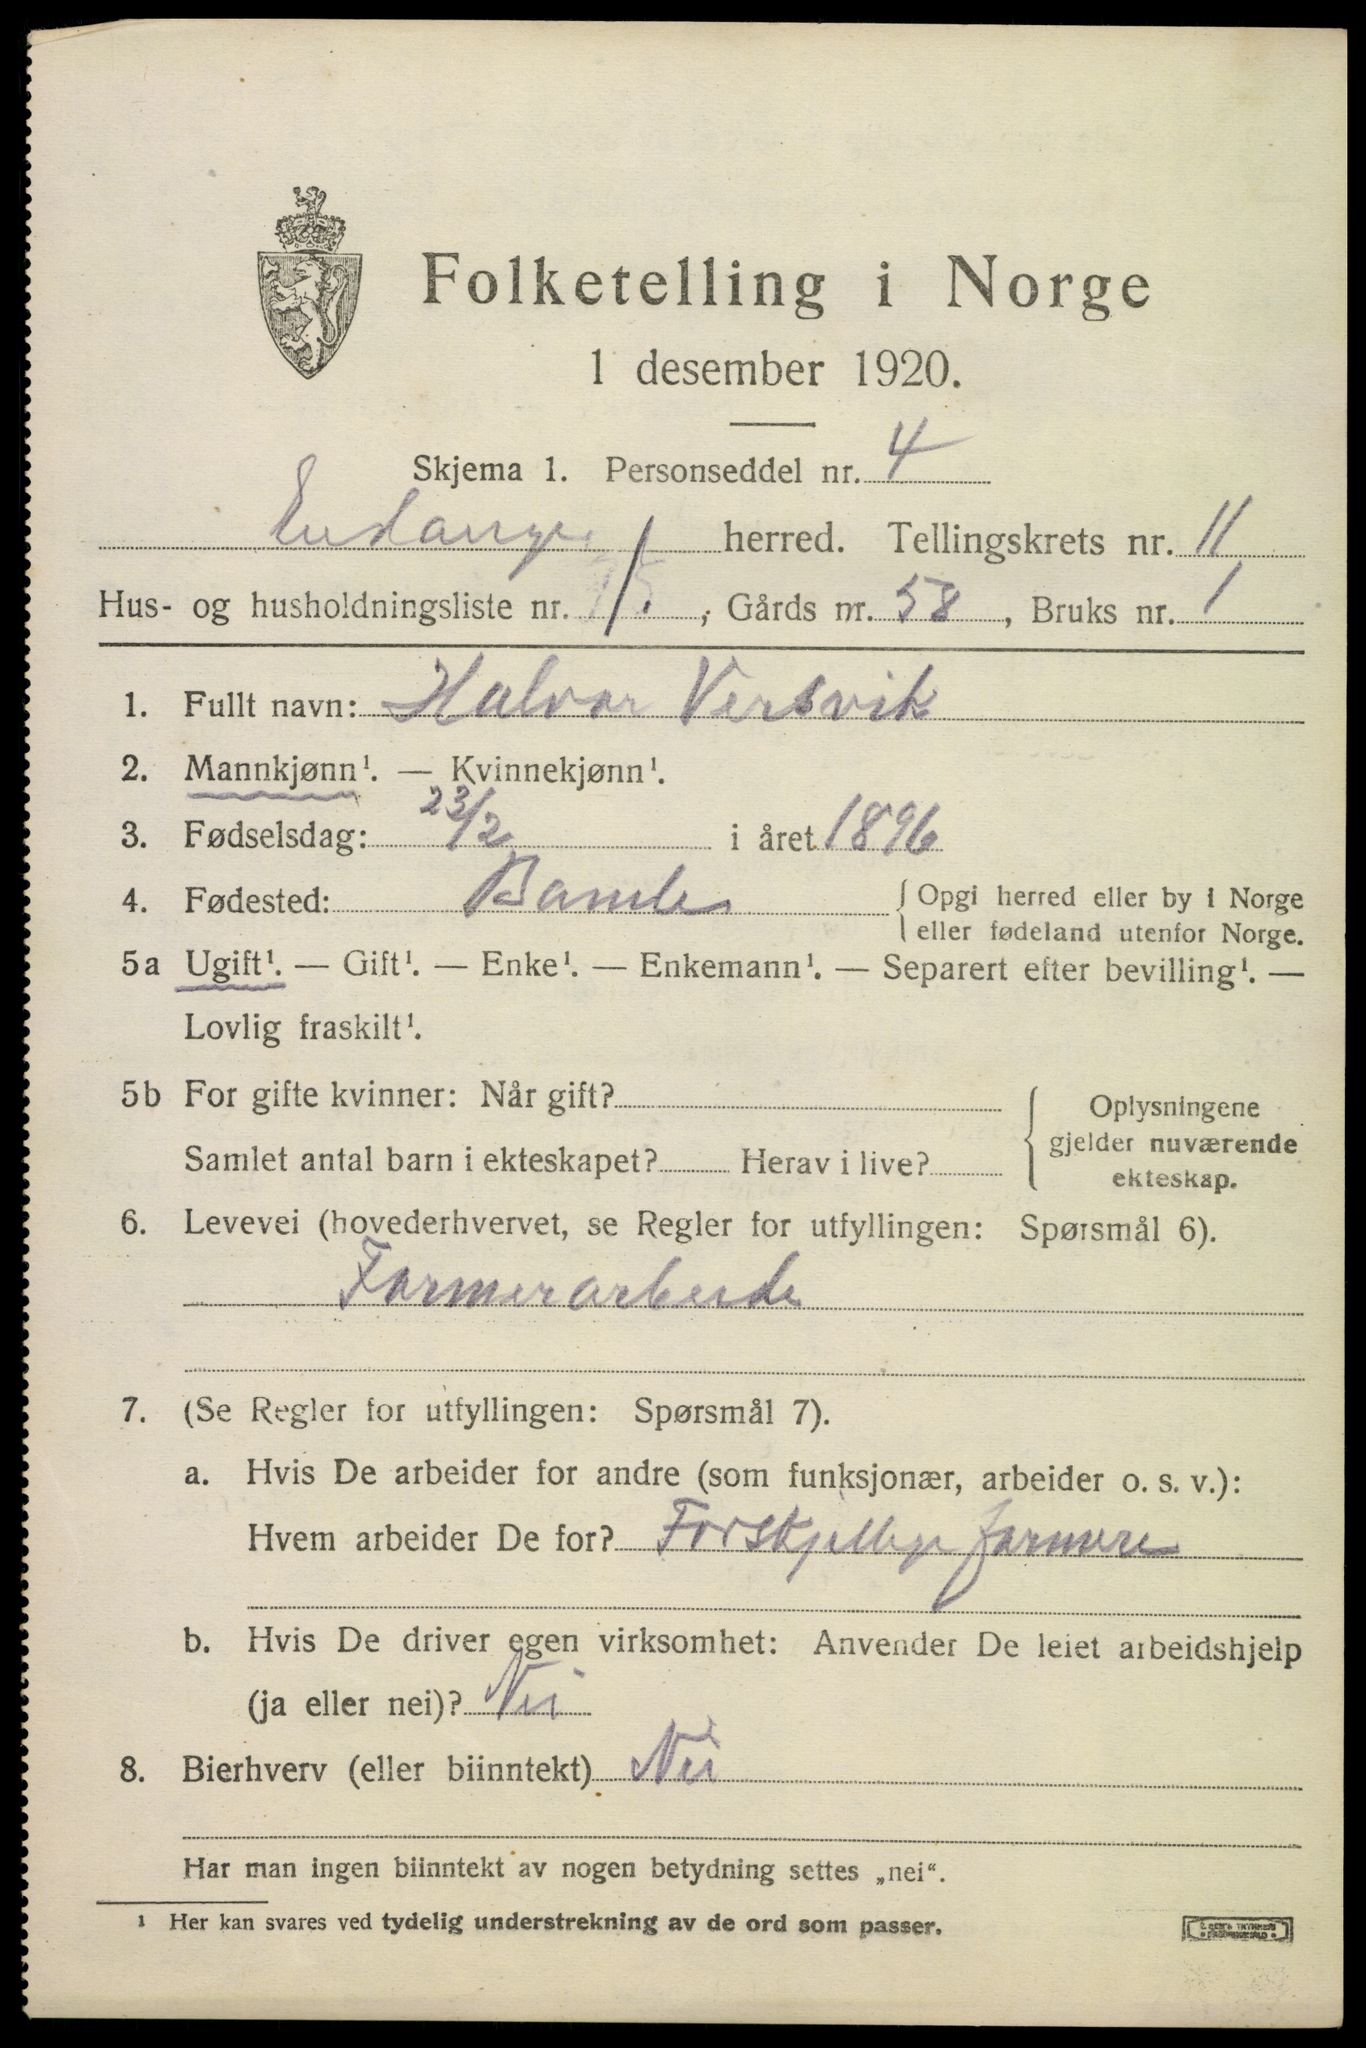 Folketelling i Norge
1 desember 1920.
Skjema 1. Personseddel nr. 4
Eidanger herred. Tellingskrets nr. 11
Hus- og husholdningsliste nr. , Gårds nr. 58, Bruks nr. 1
1. Fullt navn: Halvor Versvik
2. Mannkjønn¹. — Kvinnekjønn¹.
3. Fødselsdag: 23/2 i året 1896
4. Fødested: Bamle { Opgi herred eller by i Norge
eller fødeland utenfor Norge.
5a Ugift¹. — Gift¹. — Enke¹. — Enkemann¹. — Separert efter bevilling¹. —
Lovlig fraskilt¹.
5b For gifte kvinner: Når gift?
Samlet antal barn i ekteskapet? Herav i live?
{ Oplysningene
gjelder nuværende
ekteskap.
6. Levevei (hovederhvervet, se Regler for utfyllingen: Spørsmål 6).
Farmerarbeide
7. (Se Regler for utfyllingen: Spørsmål 7).
a. Hvis De arbeider for andre (som funksjonær, arbeider o. s. v.):
Hvem arbeider De for? Forskjellige farmere
b. Hvis De driver egen virksomhet: Anvender De leiet arbeidshjelp
(ja eller nei)? Nei
8. Bierhverv (eller biinntekt) Nei
Har man ingen biinntekt av nogen betydning settes „nei“.
¹ Her kan svares ved tydelig understrekning av de ord som passer.